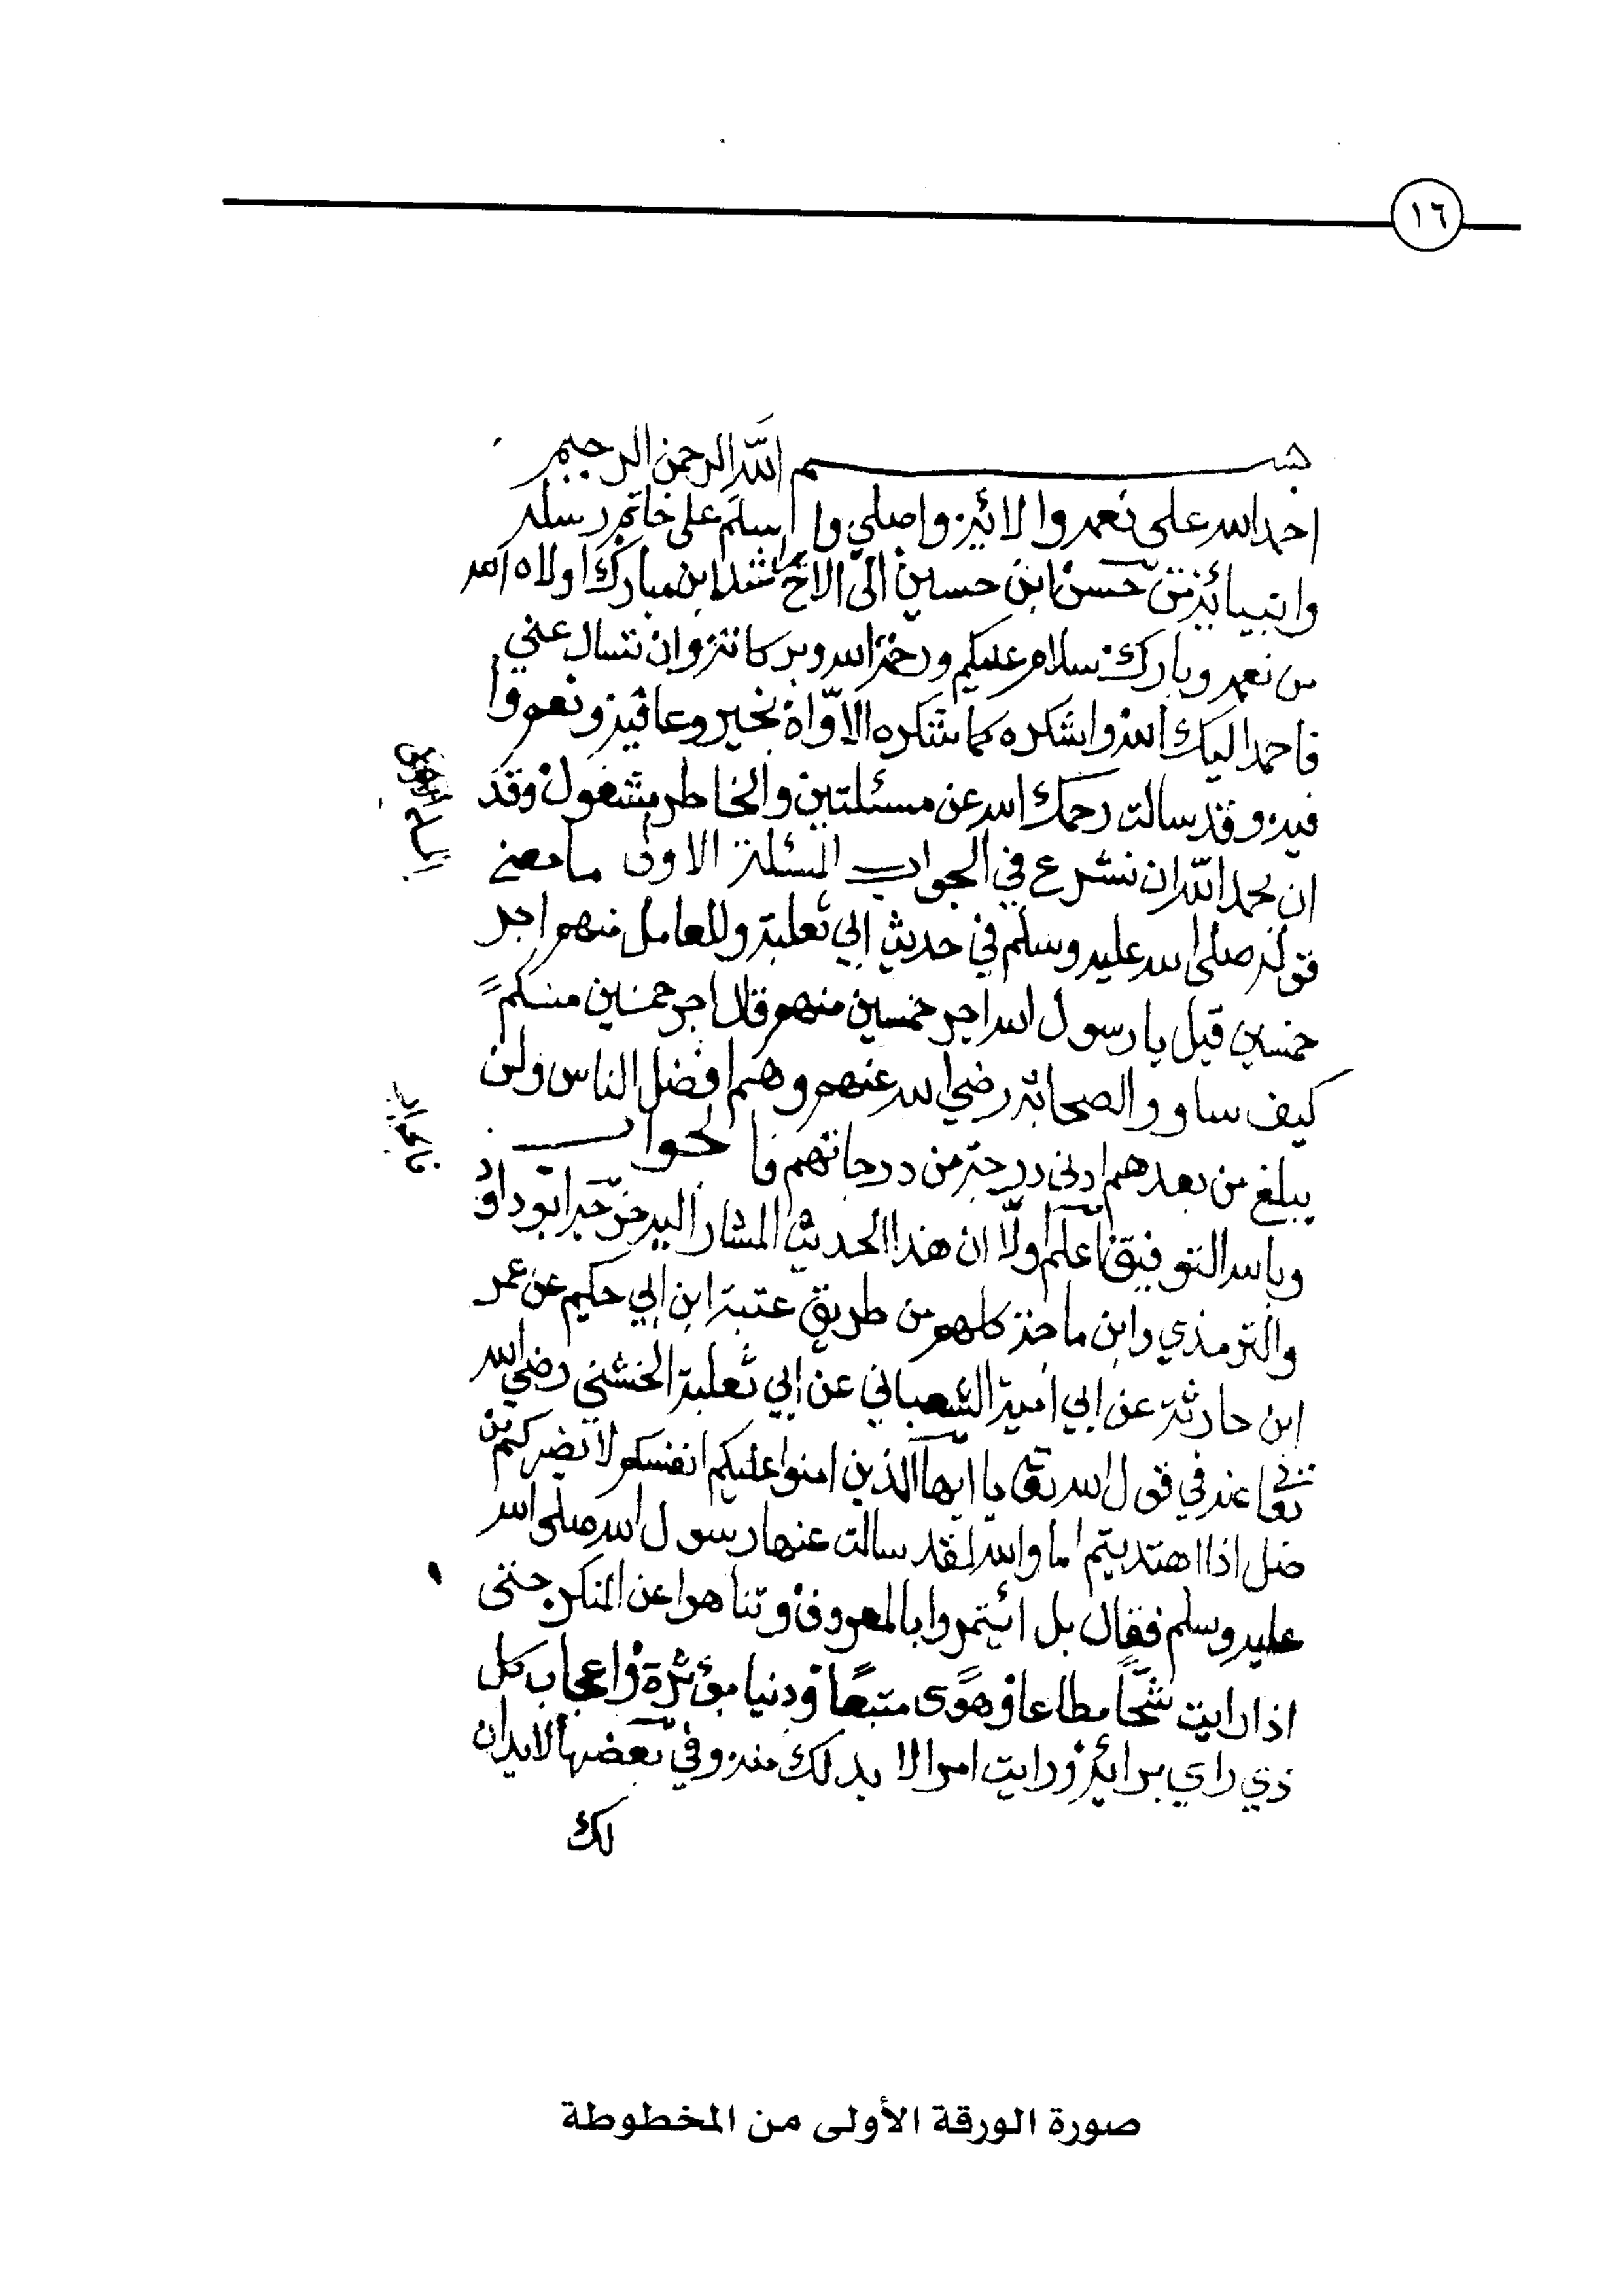 ١٦
بسم الله الرحمن الرحيم
احمد الله على نعمه والائه واصلي و اسلم على خاتم رسله
وانبيائه من حسن ابن حسين الى الاخ راشد ابن مبارك اولاه الله
من نعمه وبارك سلام عليكم ورحمة الله وبركاته وان تسال عني
فاحمد اليك الله واشكره كما شكره الاوّاه بخير وعافية ونعم وا
فيه وقد سالت رحمك الله عن مسئلتين والخاطر مشغول وقد
ان بحمد الله ان نشرع في الجواب المسئلة الاولى ما معنى
قوله صلى الله عليه وسلم في حديث ابي ثعلبة وللعامل منهم اجر
خمسين قيل يا رسول الله اجر خمسين منهم قال اجر خمسين منكم
كيف ساوو الصحابة رضي الله عنهم وهم افضل الناس ولن
يبلغ من بعدهم ادنى درجة من درجاتهم فا لجواب
وبالله التوفيق اعلم اولا ان هذا الحديث المشار اليه خرّجه ابو داود
والترمذي وابن ماجة كلهم من طريق عتبة ابن ابي حكيم عن عمر
ابن حارثة عن ابي امية الشعباني عن ابي ثعلبة الخشني رضي الله
تعا عنه في قول الله تعا يا ايها الذين امنوا عليكم انفسكم لا يضركم من
ضل اذا اهتديتم اما والله لقد سالت عنها رسول الله صلى الله
عليه وسلم فقال بل ائتمروا بالمعروف وتناهوا عن المنكر حتى
اذا رايت شحًّا مطاعا وهوًى متبعًا ودنيا مؤثرة واعجاب كل
ذي راي برائه ورايت امرا لا بد لك منه وفي بعضها لا يدان
لك
صورة الورقة الأولى من المخطوطة